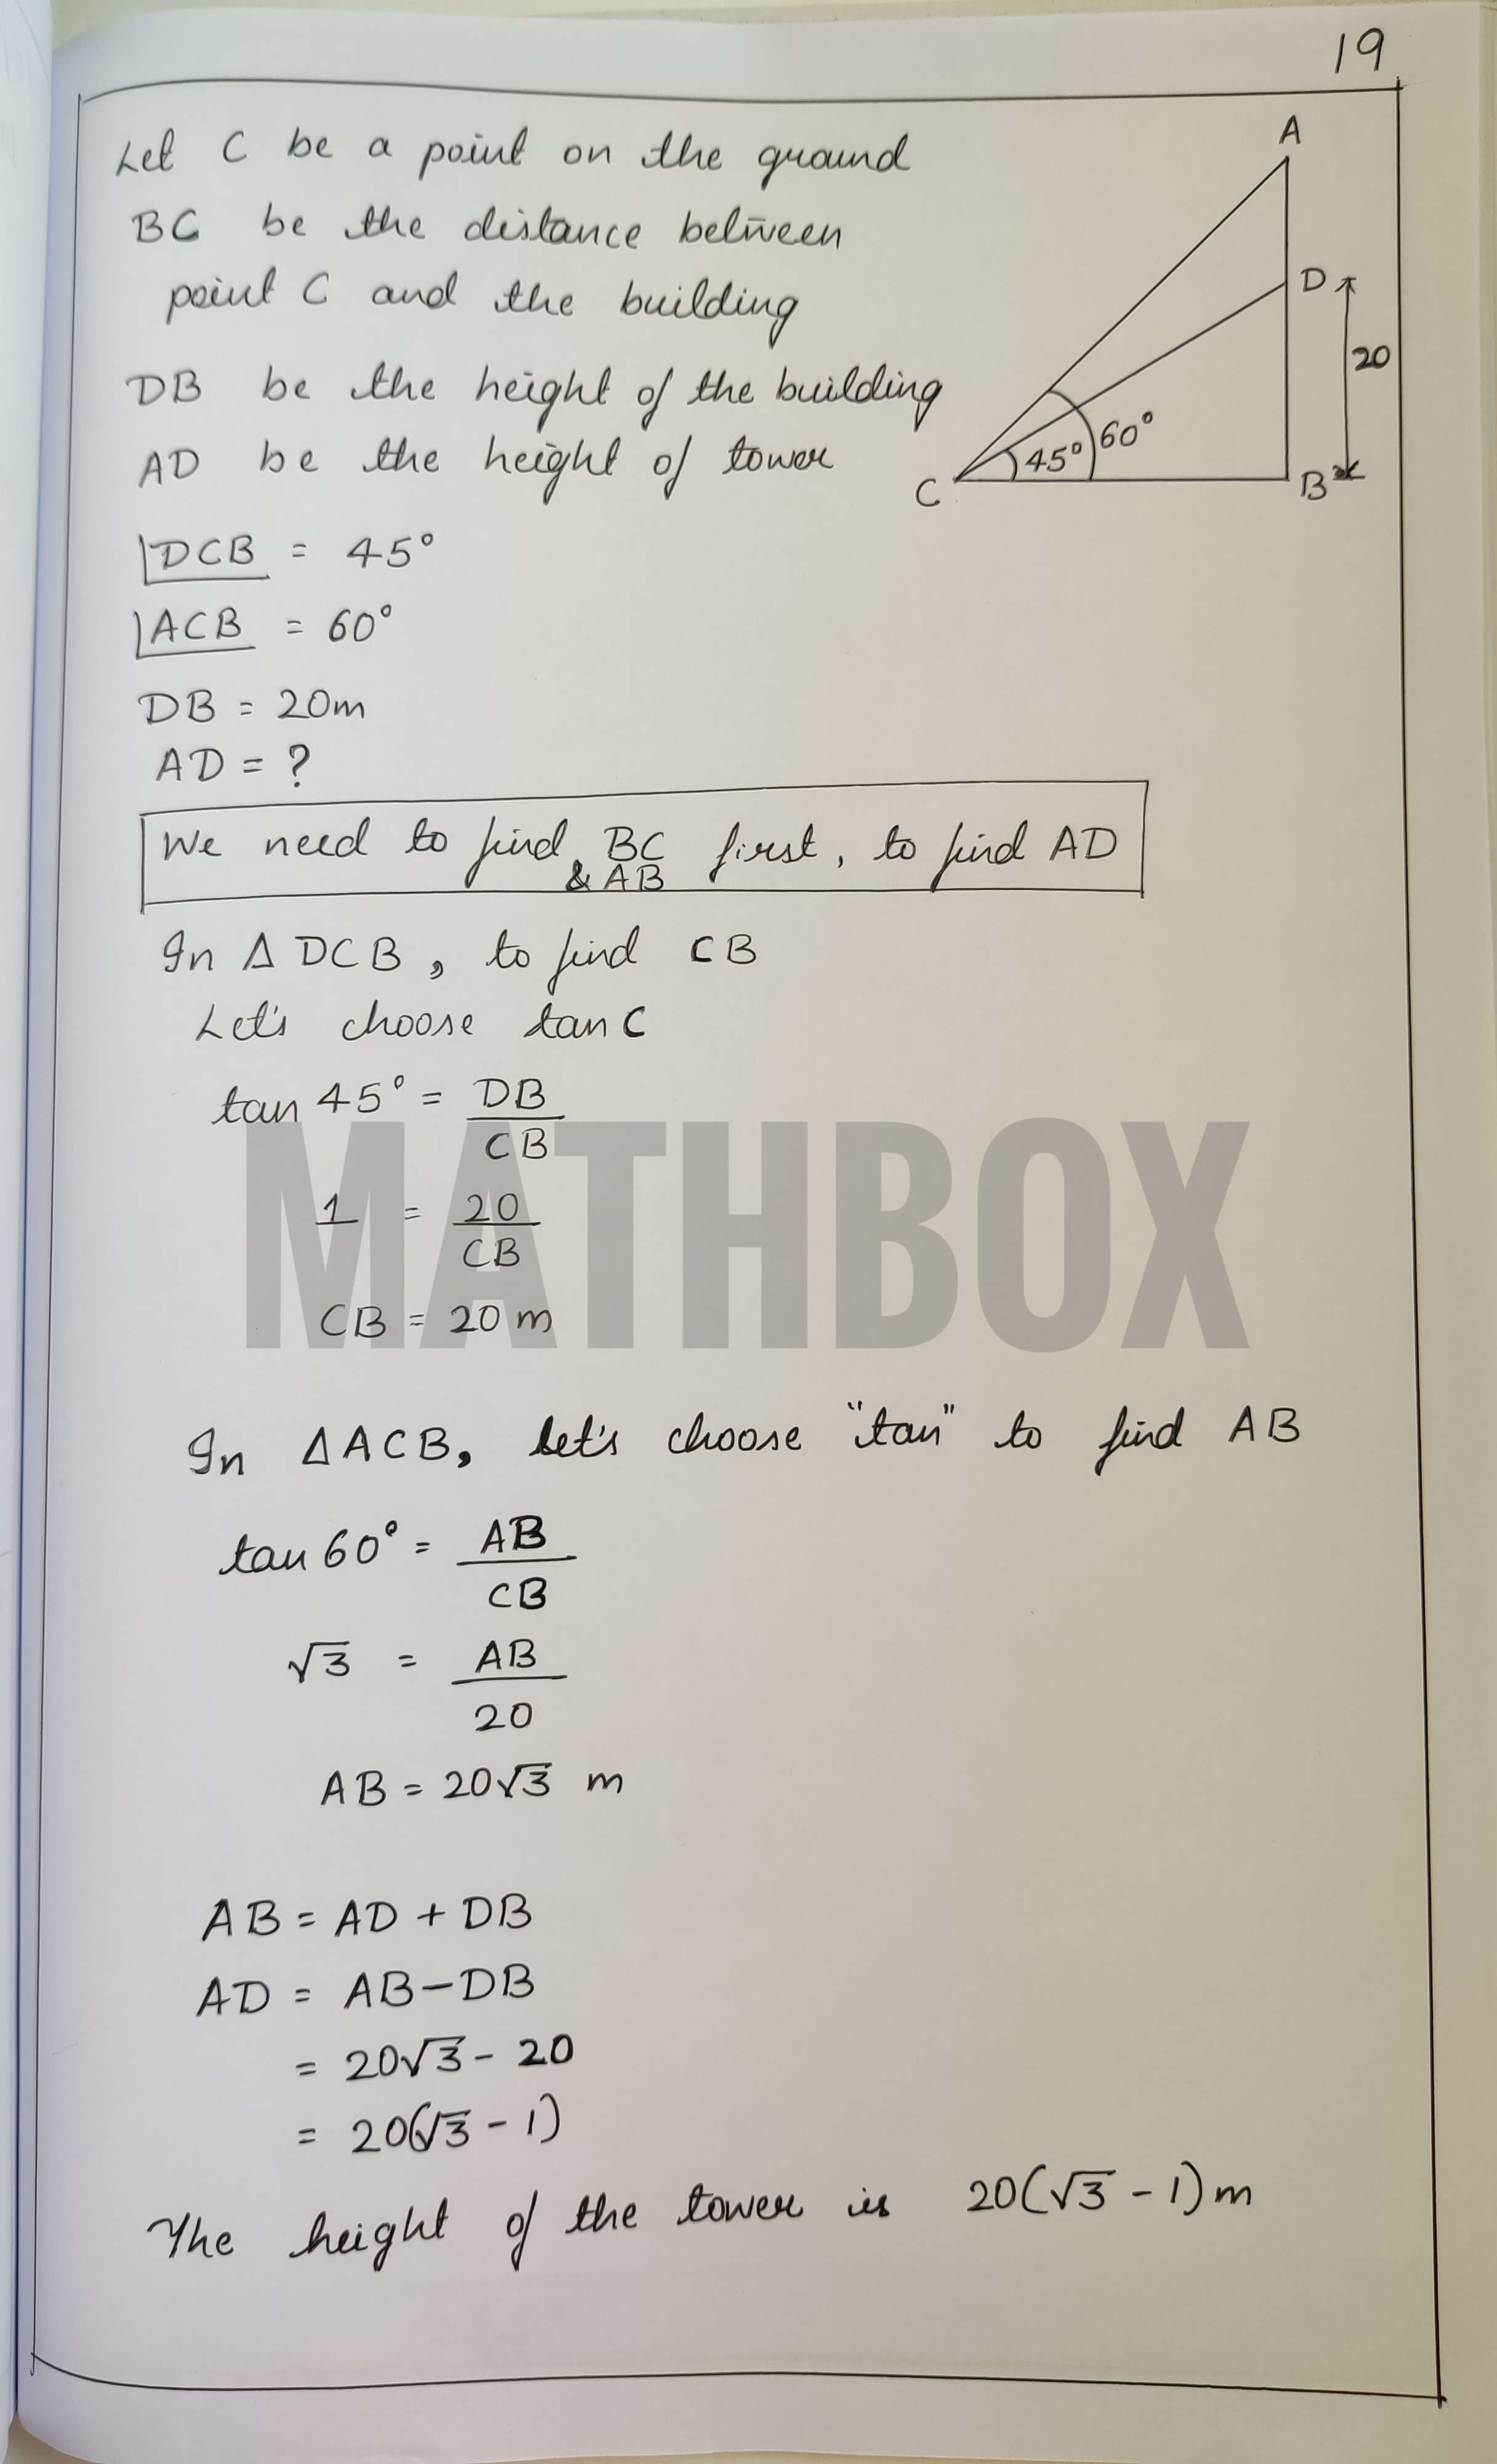 19
Let C be a point on the ground
BC be the distance between
point C and the building
DB be the height of the building
AD be the height of tower
A
D
20
45° 60°
C
B
∠DCB = 45°
∠ACB = 60°
DB = 20m
AD = ?
We need to find BC first, to find AD
& AB
In Δ DCB, to find CB
Let's choose tan C
tan 45° = DB
CB
MATHBOX
1 = 20
CB
CB = 20 m
In ΔACB, let's choose "tan" to find AB
tan 60° = AB
CB
√3 = AB
20
AB = 20√3 m
AB = AD + DB
AD = AB - DB
= 20√3 - 20
= 20(√3 - 1)
The height of the tower is 20(√3 - 1) m